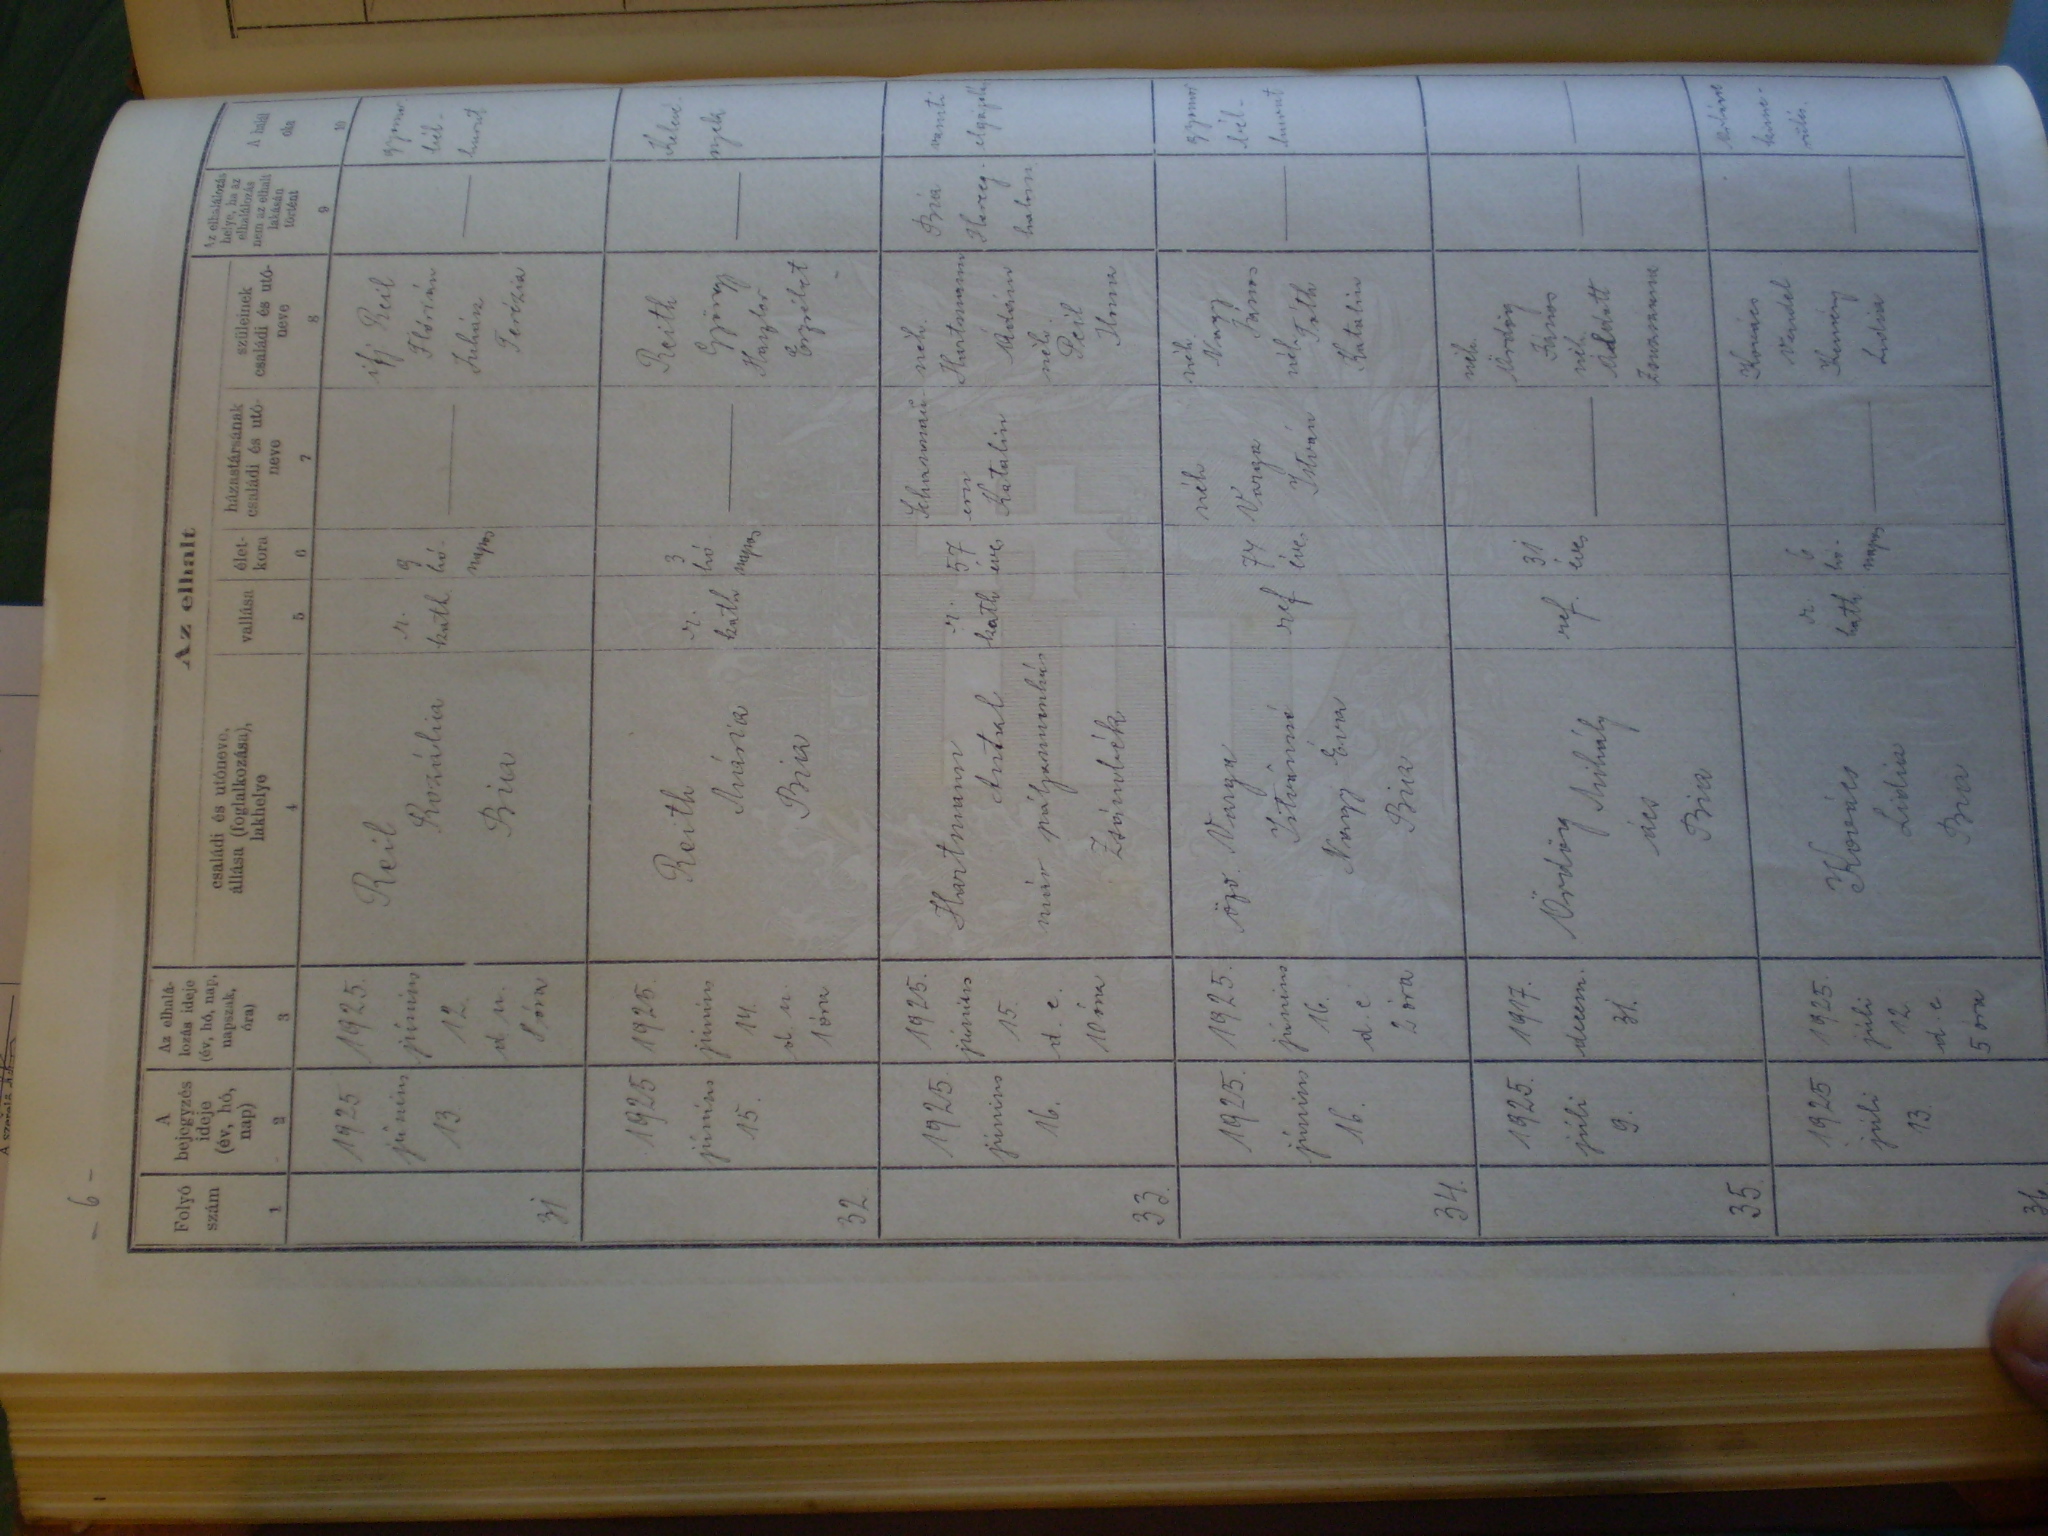 - 6 -
Az elhalt
Folyó
szám
1
A
bejegyzés
ideje
(év, hó,
nap)
2
Az elhalá-
lozás ideje
(év, hó, nap,
napszak,
óra)
3
családi és utóneve,
állása (foglalkozása),
lakhelye
4
vallása
5
élet-
kora
6
házastársának
családi és utó-
neve
7
szüleinek
családi és utó-
neve
8
Az elhalálozás
helye, ha az
elhalálozás
nem az elhalt
lakásán
történt
9
A halál
oka
10
31
1925
június
13
1925.
június
12.
d. u.
8 óra
Reil
Rozália
Bia
r.
kath.
9
hó-
napos
ifj Reil
Flórián
Juhász
Terézia
gyomor
bél-
hurut
32.
1925
június
15.
1925.
június
14.
d. u.
1 óra
Reith
Mária
Bia
r.
kath
3
hó-
napos
Reith
György
Erzsébet
33.
1925.
június
16.
1925.
június
15.
d. e.
10 óra
Hartmann
Antal
máv pályamunkás
Zsámbék
r.
kath
57
éves
Katalin
néh.
Hartmann
Ádám
néh.
Peil
Ilona
Bia
Herceg-
halom
34.
1925.
június
16.
1925.
június
16.
d. e
2 óra
özv. Varga
Istvánné
Nagy Éva
Bia
ref
74
éves
néh
Varga
István
néh.
Nagy
János
néh. Tóth
Katalin
gyomor
bél-
hurut
35.
1925.
júli
9.
1917.
decem.
31.
Ördög Mihály
ács
Bia
ref.
31
éves
néh.
Ördög
János
néh.
Zsuzsánna
36
1925
júli
13.
1925.
júli
12.
d. e.
5 óra
Kovács
Lidia
Bia
r.
kath
6
hó-
napos
Kovács
Vendel
Kemény
Lidia